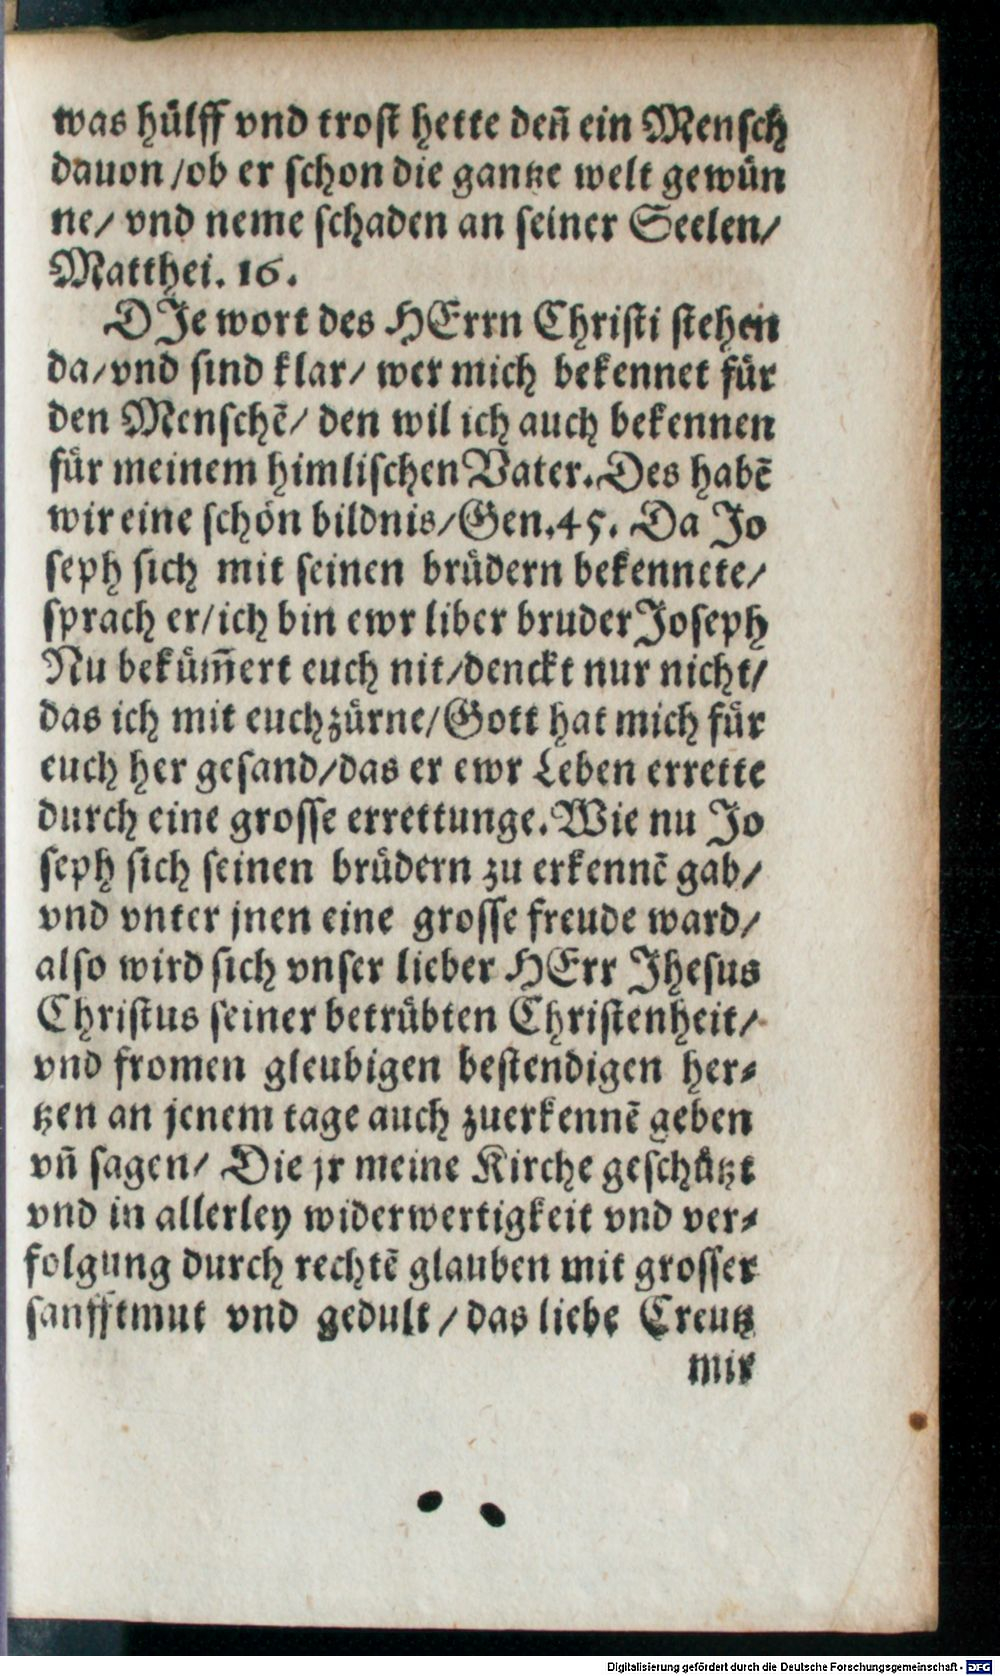 was hülff vnd trost hette deñ ein Mensch
dauon /ob er schon die gantze welt gewün
ne/ vnd neme schaden an seiner Seelen/
Matthei. 16.
DJe wort des HErrn Christi stehen
da/vnd sind klar/ wer mich bekennet für
den Menschẽ/ den wil ich auch bekennen
für meinem himlischen Vater. Des habẽ
wir eine schön bildnis/Gen.45. Da Jo
seph sich mit seinen brüdern bekennete/
sprach er/ich bin ewr liber bruder Joseph
Nu bekümm̃ert euch nit/denckt nur nicht/
das ich mit euch zürne/Gott hat mich für
euch her gesand/das er ewr Leben errette
durch eine grosse errettunge. Wie nu Jo
seph sich seinen brüdern zu erkennẽ gab/
vnd vnter jnen eine grosse freude ward/
also wird sich vnser lieber HErr Jhesus
Christus seiner betrübten Christenheit/
vnd fromen gleubigen bestendigen her-
tzen an jenem tage auch zuerkennẽ geben
vñ sagen/ Die jr meine Kirche geschützt
vnd in allerley widerwertigkeit vnd ver-
folgung durch rechtẽ glauben mit grosser
sanfftmut vnd gedult /das liebe Creutz
mir
Digitalisierung gefördert durch die Deutsche Forschungsgemeinschaft - DFG